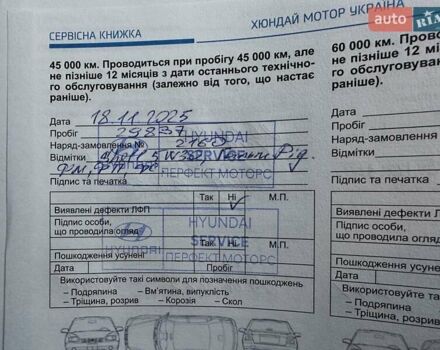 auto RIA
СЕРВІСНА КНИЖКА
ХЮНДАЙ МОТОР УКРАЇНА
45 000 км. Проводиться при пробігу 45 000 км, але
не пізніше 12 місяців з дати останнього технічно-
го обслуговування (залежно від того, що настає
раніше).
Дата 18.11.2025
Пробіг 29837
Наряд-замовлення № 2160
Відмітки 5W30
Підпис та печатка
HYUNDAI
SERVICE
ПЕРФЕКТ МОТОРС
Так Ні М.П.
Виявлені дефекти ЛФП
Підпис особи,
що проводила огляд
HYUNDAI
HYUNDAI
SERVICE
ПЕРФЕКТ МОТОРС
Так Ні М.П.
Пошкодження усунені
Дата Пробіг
Використовуйте такі символи для позначення пошкоджень
– Подряпина – Вм'ятина, випуклість
– Тріщина, розрив – Корозія – Скол
60 000 км. Прово
не пізніше 12 міс
го обслуговуванн
раніше).
Дата
Пробіг
Наряд-замовлення
Відмітки
Підпис та печатка
Виявлені дефекти Л
Підпис особи,
що проводила огля
Пошкодження усуне
Дата
Використовуйте
– Подряпина
– Тріщина, розр